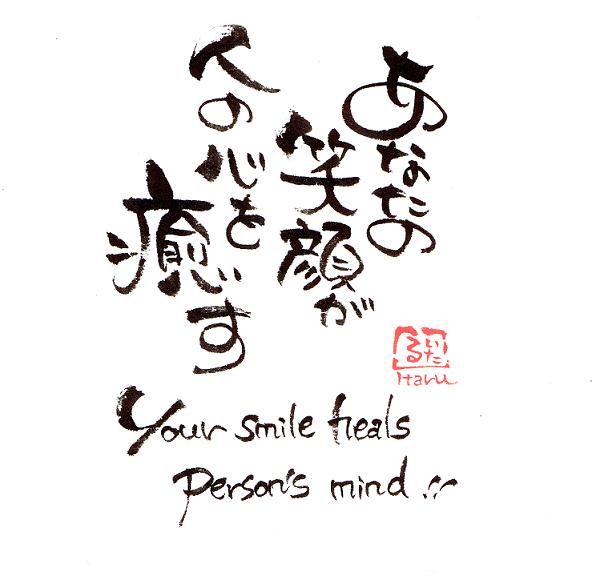 あなたの
笑顔が
人の心を
癒す
いたる
Itaru
Your smile heals
person's mind